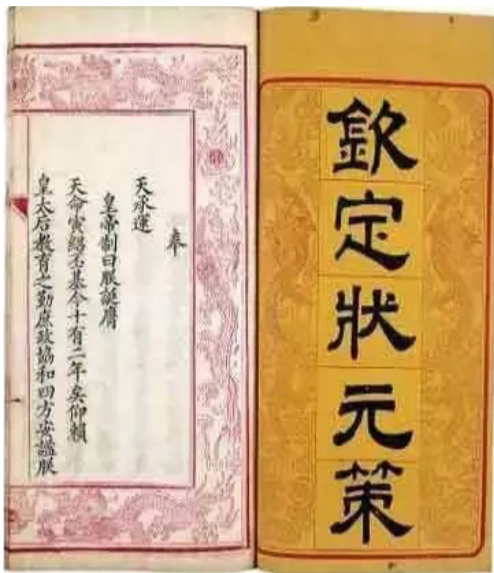 欽定狀元策
奉
天承運
皇帝制曰朕誕膺
天命寅紹丕基今十有二年矣仰賴
皇太后教育之勤庶政協和四方安謐朕